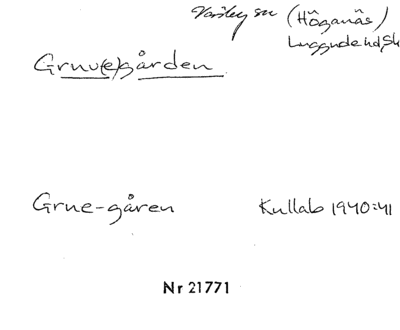 Väsby sn (Höganäs)
Luggude hd, Sk
Gruv(e)gården
Grue-gåren
Kullab 1940:41
Nr 21771